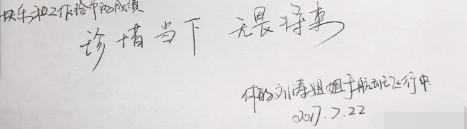 快乐和工作给你的成绩
珍惜当下 无畏将来
你的刘涛姐姐于航班飞行中
2017.7.22